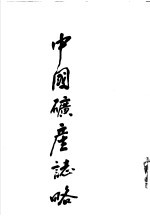 中國礦產誌略